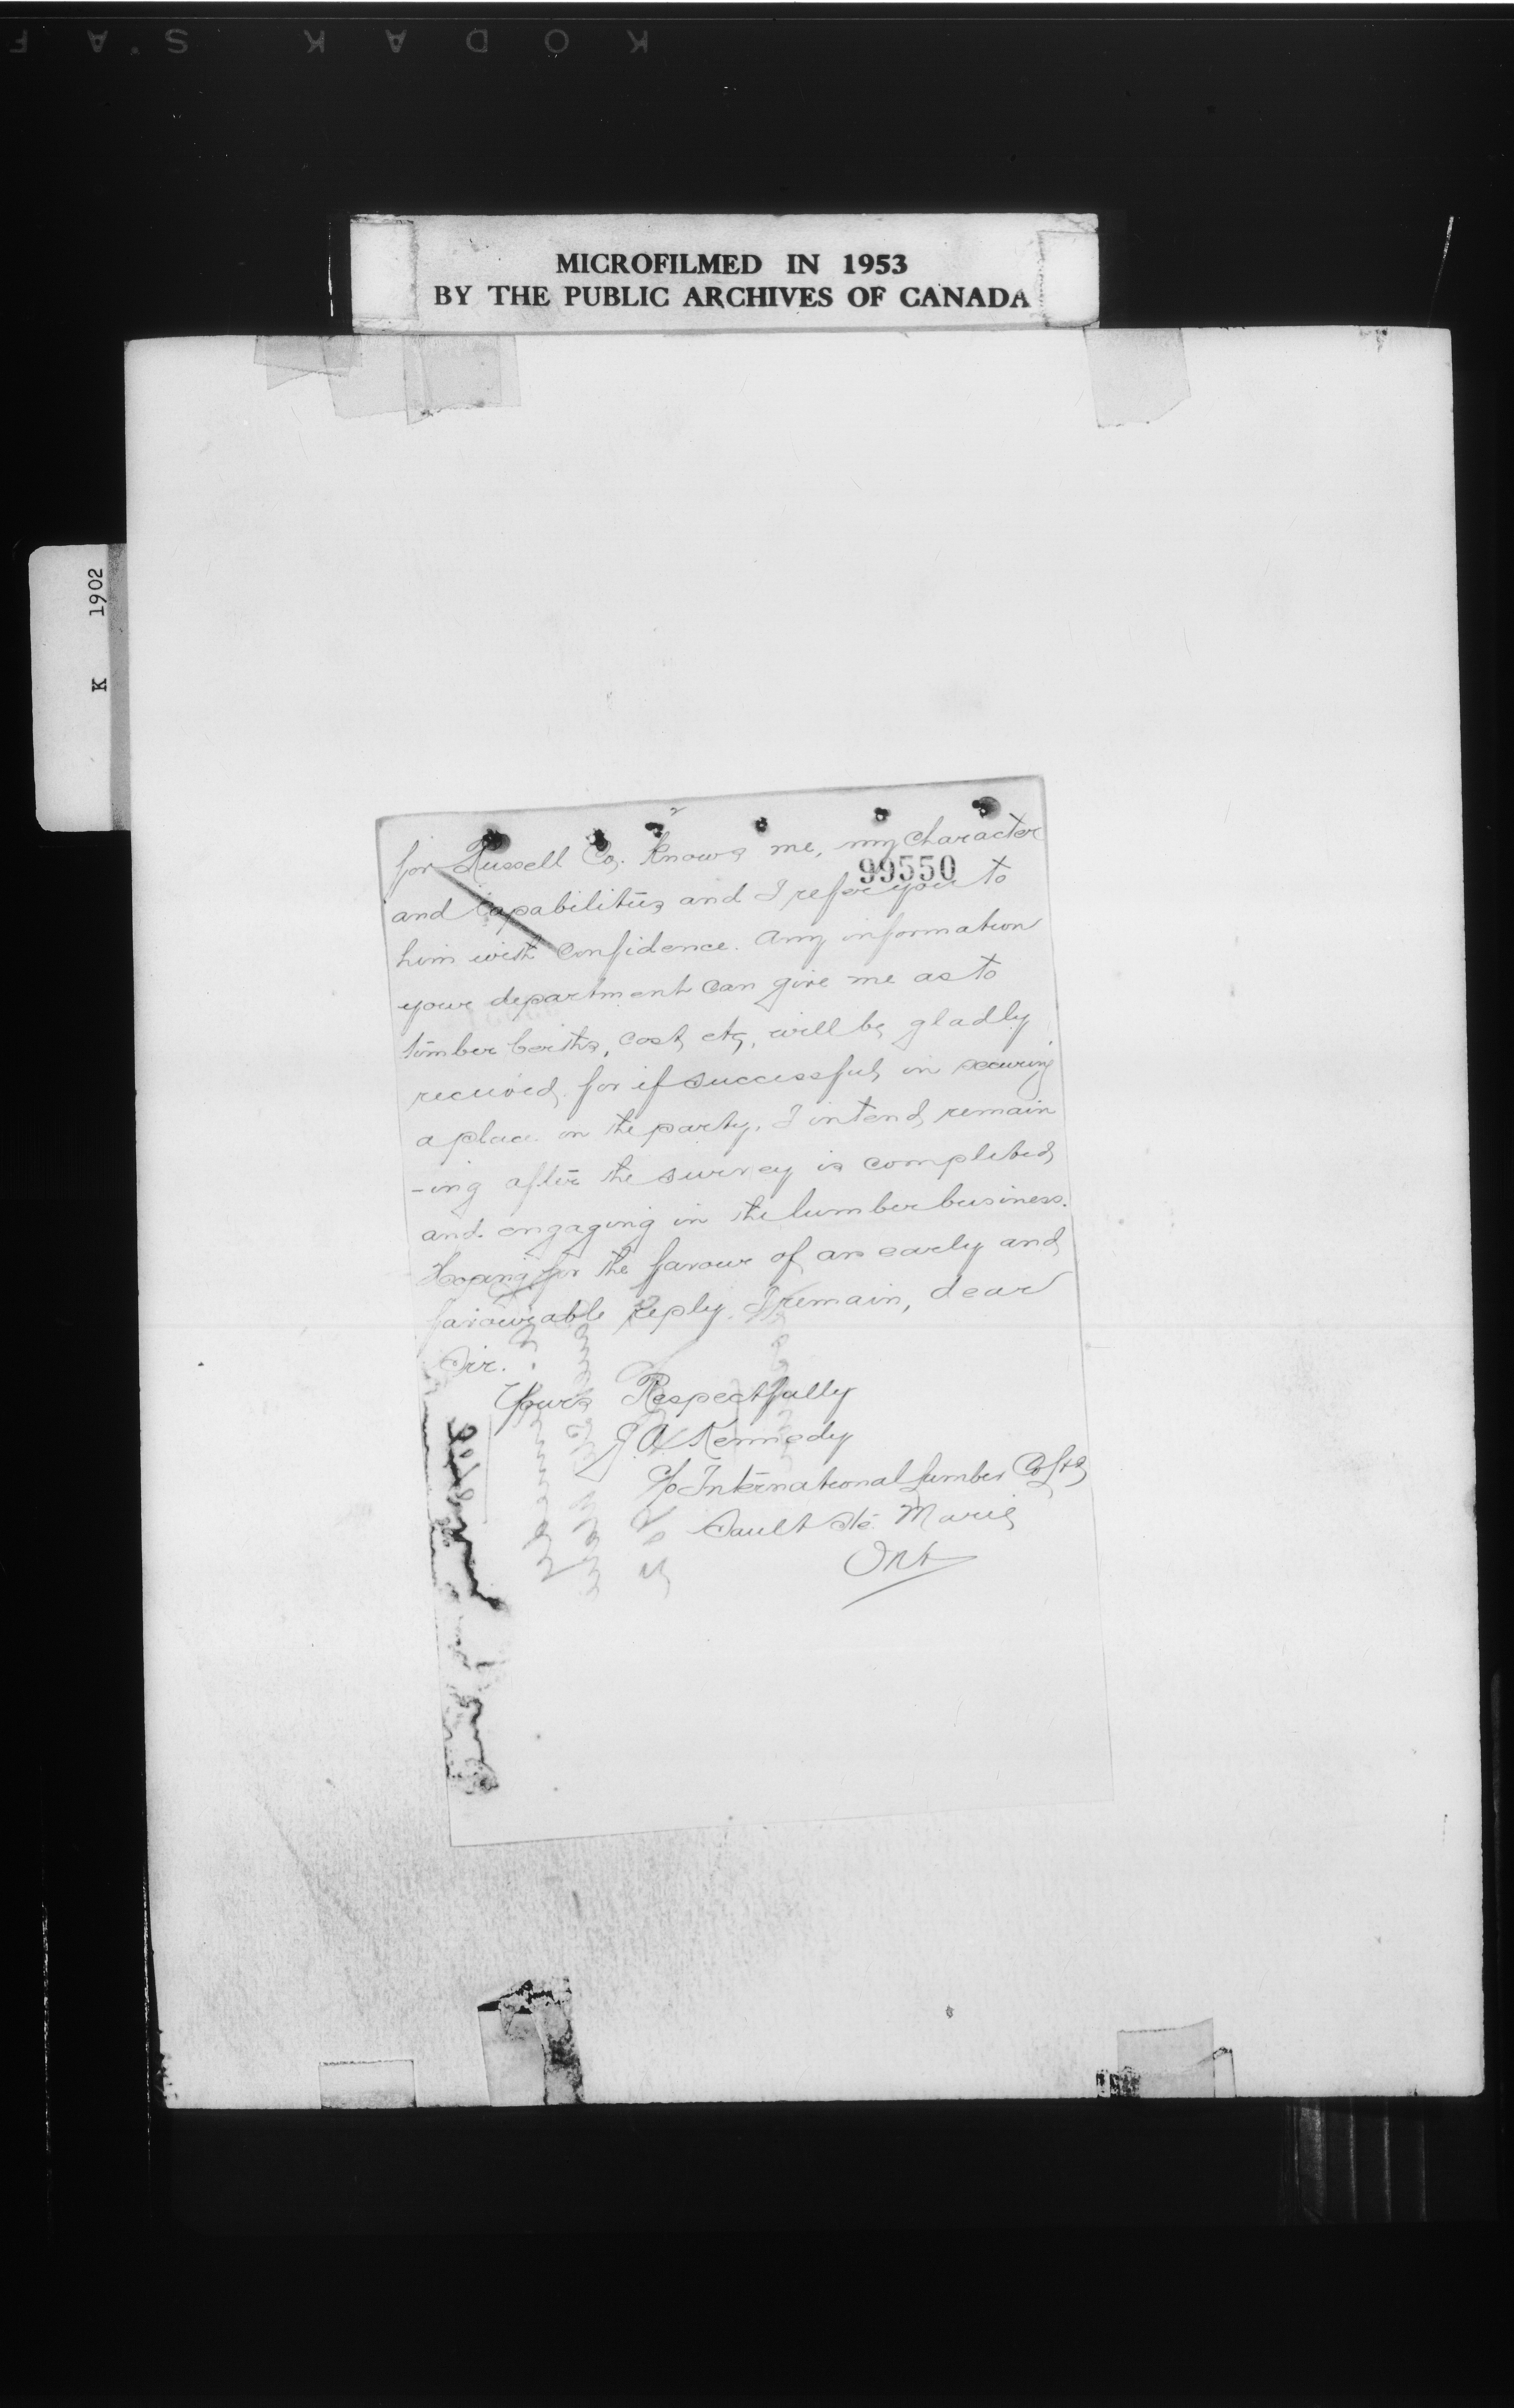 KODAK SAF
MICROFILMED IN 1953
BY THE PUBLIC ARCHIVES OF CANADA
K 1902
for Russell Co. knows me, my character
99550
and capabilities and I refer you to
him with confidence. Any information
your department can give me as to
timber berths, cost, etc, will be gladly
received, for if successful in securing
a place on the party, I intend remain
-ing after the survey is completed,
and engaging in the lumber business.
Hoping for the favour of an early and
favourable reply. I remain, dear
Sir.
Yours Respectfully
J. A. Kennedy
c/o International Lumber Co Ltd
Sault Ste. Marie
Ont